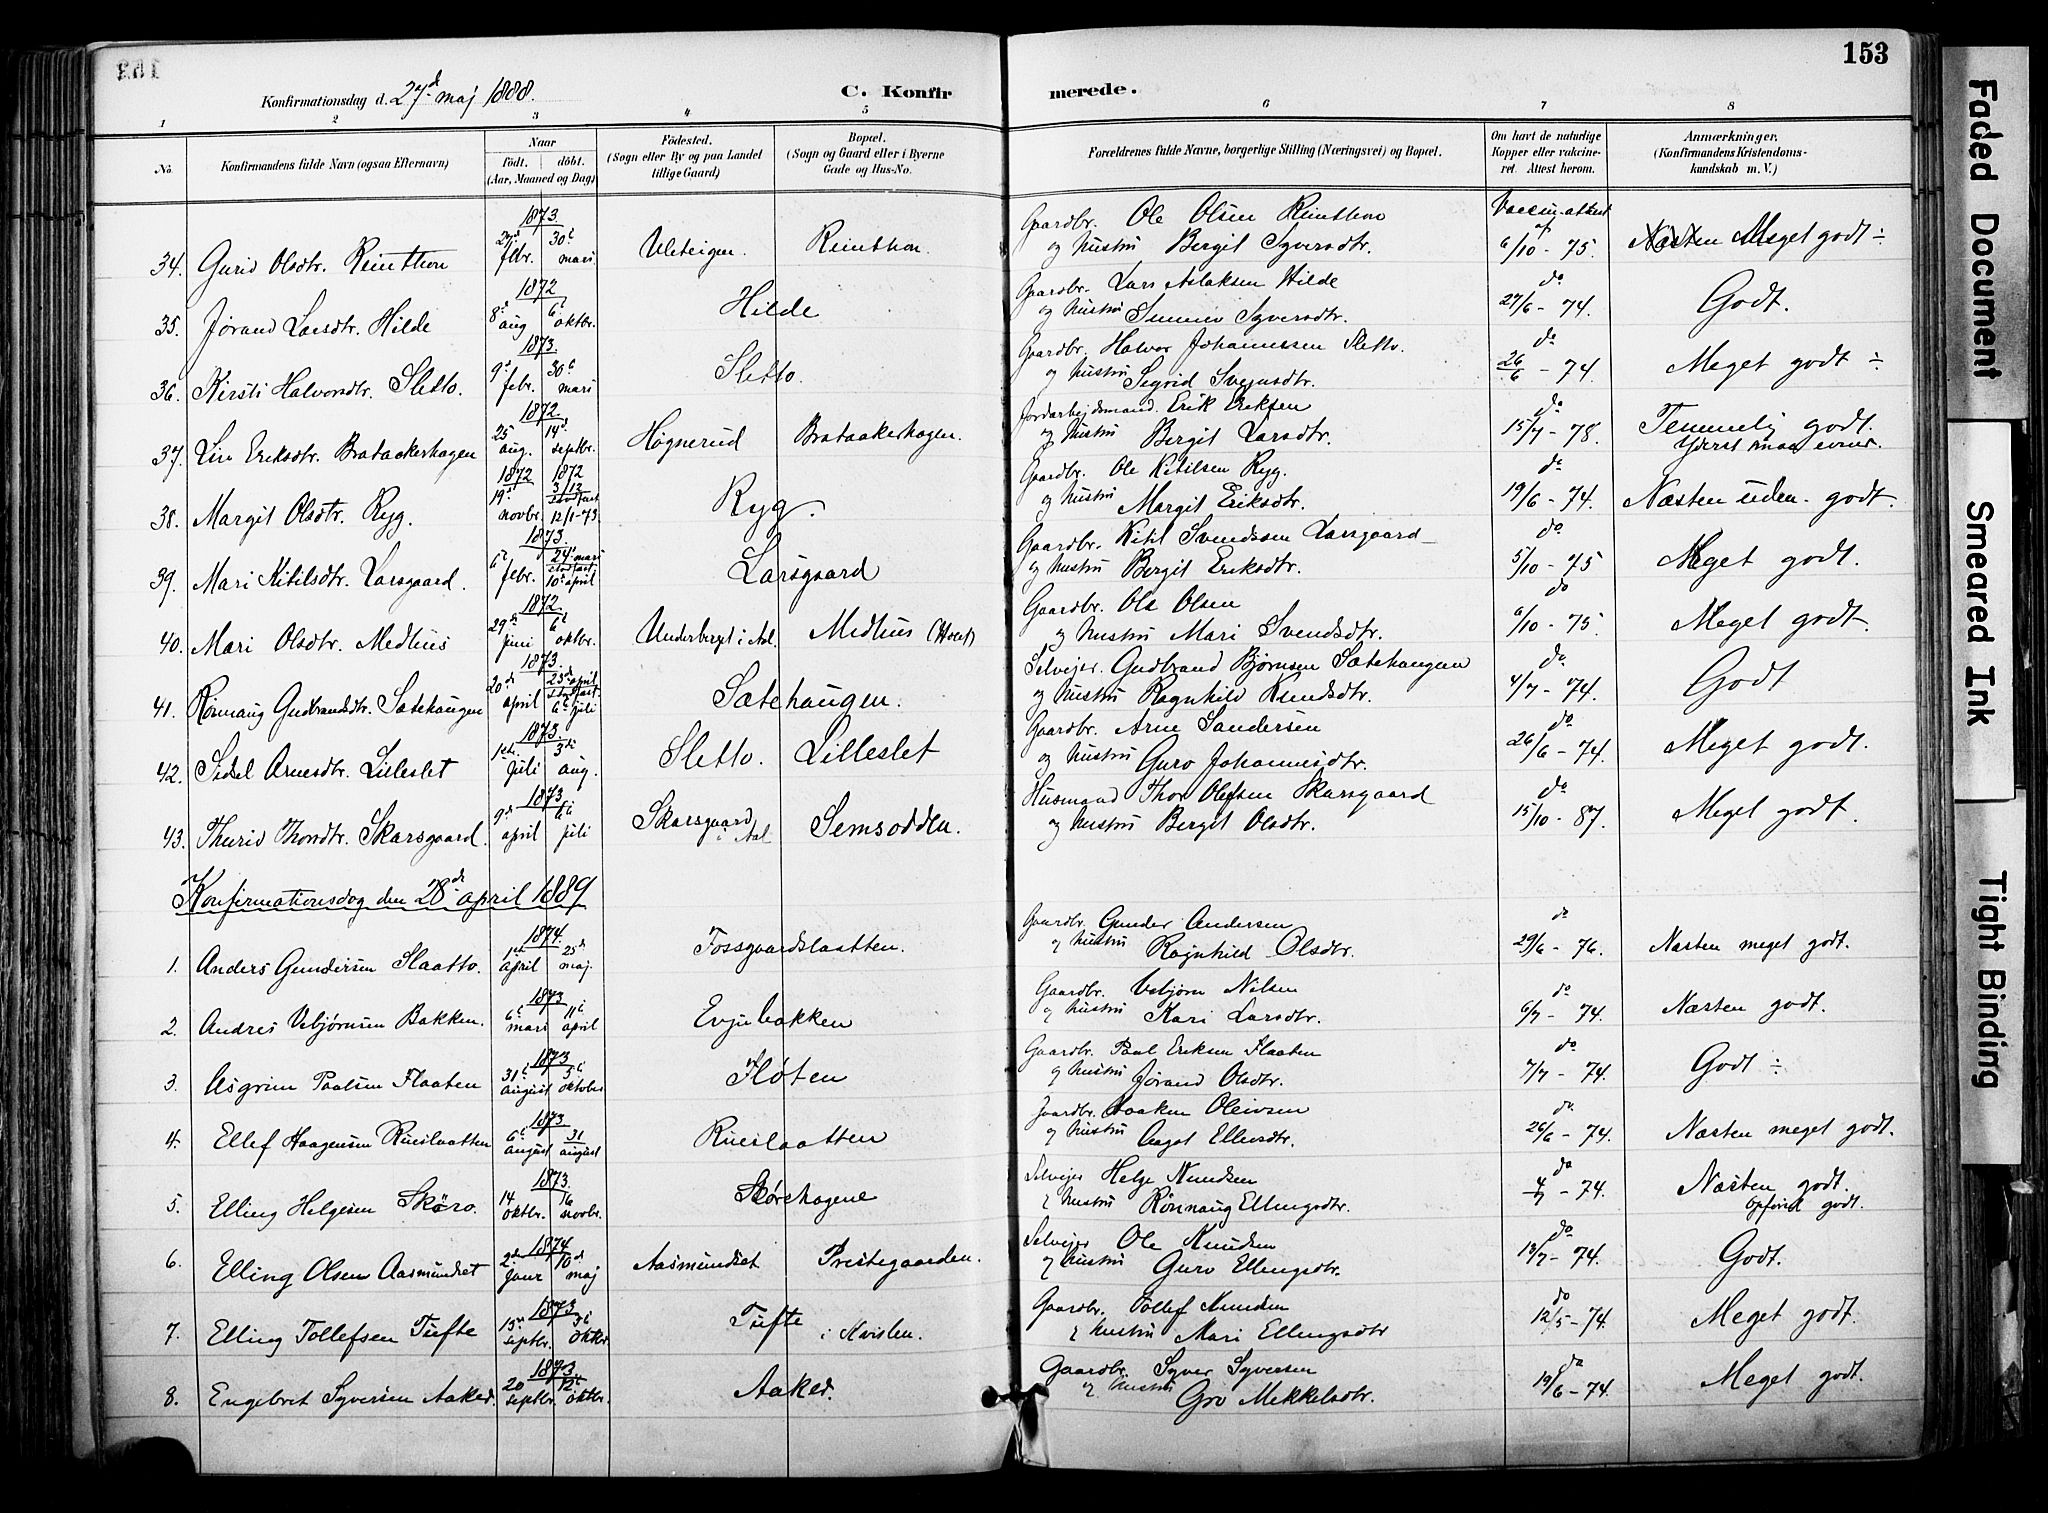 153
Konfirmationsdag d. 27d maj 1888.
C. Konfirmerede.
1 2 3 4 5 6 7 8
No.
Konfirmandens fulde Navn (ogsaa Efternavn)
Naar
födt. döbt.
(Aar, Maaned og Dag)
Födested.
(Sogn eller By og paa Landet
tillige Gaard)
Bopæl.
(Sogn og Gaard eller i Byerne
Gade og Hus-No.
Forældrenes fulde Navne, borgerlige Stilling (Næringsvei) og Bopæl.
Om havt de naturlige
Kopper eller vakcine-
ret. Attest herom.
Anmærkninger.
(Konfirmandens Kristendoms-
kundskab m. V.)
1873. Gaardbr. Ole Olsen Reinthon
34. Gurid Olsdtr. Reinthon febr. 30t mars. Uleteigen. Reinthon. og hustru Bergit Syversdtr. 6/10 - 75. Meget godt ÷
1872 Gaardbr. Lars Aslaksen Hilde do
35. Jørand Larsdtr. Hilde 8d aug 6t oktbr. Hilde og hustru Syversdtr. 27/6 - 74. Godt.
1873. Gaardbr. Halvor Johannessen Sletto. do
36. Kirsti Halvorsdtr. Sletto. 9d febr. 30t mars Sletto. og hustru Sigrid Svensdtr. 26/6 - 74. Meget godt ÷
1872. Jordarbejdsmand. Erik Eriksen do
37. Liv Eriksdtr. Brataakerhagen 25 aug. 14d septbr. Høgnerud Brataakerhagen. og hustru Bergit Larsdtr. 15/7 - 78. Temmelig godt.
1872 1872 Gaardbr. Ole Kitilsen Ryg. do
38. Margit Olsdtr. Ryg. 19d novbr. 3/12 stadfæst 12/1-73. Ryg. og hustru Margit Eriksdtr. 19/6 - 74. Næsten uden. godt.
1873. Gaardbr. Kitil Svendssen Larsgaard do
39. Mari Kitilsdtr. Larsgaard. 6t febr. 24d mars stadfæst 10d april Larsgaard og hustru Bergit Eriksdtr. 5/10 - 75 Meget godt.
1872. Gaardbr. Ole Olsen do
40. Mari Olsdtr. Medhus 29d juni 6t oktbr. Underberget i Aal. Medhus (Hoel) og hustru Mari Svendsdtr. 6/10 - 75. Meget godt.
1873. Selvejer. Gudbrand Bjørnsen Sætehaugen do
41. Rønnaug Gudbrandsdtr. Sætehaugen 20d april stadfæst 6t juli Sætehaugen. og hustru Ragnhild Knudsdtr. 4/7 - 74. Godt
1873. Gaardbr. Arne Sandersen do
42. Sidsel Arnesdtr. Lilleslet 1st juli 3d aug. Sletto. Lilleslet og hustru Guro Johannisdtr. 26/6 - 74. Meget godt.
1873 Husmand Thor Olefsen Skarsgaard do
43. Thurid Thorsdtr. Skarsgaard. 9d april 6t juli Skarsgaard i Aal Semsodden. og hustru Bergit Olsdtr. 15/10 - 87. Meget godt.
Konfirmationsdag den 28d april 1889
1874. Gaardbr. Gunder Andersen do
1. Anders Gundersen Slaatto. 1st april 25d maj. Fossgaardslaatten. og hustru Ragnhild Olsdtr. 29/6 - 76. Næsten meget godt.
1873 Gaardbr. Vebjørn Nilsen do
2. Andres Vebjørnsen Bakken. 6t mars 11t april Evjubakken og hustru Kari Larsdtr. 6/7 - 74. Næsten godt.
1873 Gaardbr. Paul Eriksen Flaaten do
3. Asgrim Paalsen Flaaten 31t august 5t oktober Fløten og hustru Jørand Olsdtr. 7/7 - 74. Godt ÷
1873 Gaardbr. Haaken Oleivsen do
4. Ellef Haagensen Rueslaatten 6t august 31 august Rueslaatten og hustru Aagot Ellevsdtr. 26/6 - 74. Næsten meget godt.
1873. Selvejer Helge Knudsen do
5. Elling Helgesen Skøro. 14 oktbr. 16 novbr. Skørehagene hustru Rønnaug Ellingsdtr. 4/7 - 74. Næsten godt.
Opførsel godt.
1874 Selvejer Ole Knudsen do
6. Elling Olsen Aasmundset 2d Janr 10d maj Aasmundset Prestegaarden. og hustru Guro Ellingsdtr. 13/7 - 74. Godt.
1873 Gaardbr. Tollef Knudsen do
7. Elling Tollefsen Tufte septbr. oktbr. Tufte i Kvislen. hustru Mari Ellingsdtr 12/5 - 74. Meget godt.
1873 Gaardbr. Syver Syversen do
8. Engebret Syversen Aaker. 20 septbr. 12t oktbr. Aaker. og hustru Gro Mekkelsdtr. 19/6 - 74. Meget godt.
Faded Document
Smeared Ink
Tight Binding